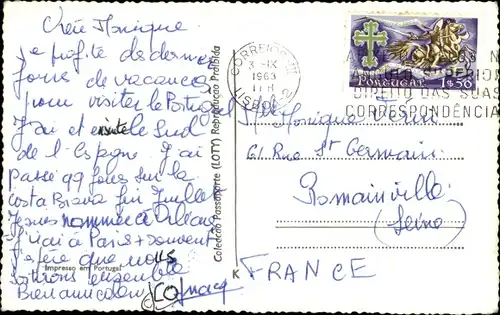 Chère Monique
Je profite de dernier
jours de vacances
pour visiter le Portugal
J'ai visité le Sud
de l'Espagne J'ai
passé qq jours sur la
Costa Brava fin Juillet
Je suis nommée à Orléans
J'irai à Paris + souvent
J'espère que nous
sortirons ensemble
Bien amicalement
Impresso em Portugal
Colecção Passaporte (LOTY) Reprodução Proibida
CORREIOS
3-IX
1963
LISBOA 2
PORTUGAL 1$50
DIREITO DAS SUAS
CORRESPONDÊNCIA
Monique
61 Rue St Germain
Romainville
(Seine)
K
FRANCE